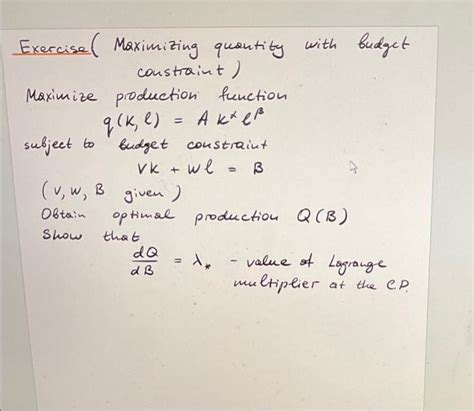 Exercise ( Maximizing quantity with budget
constraint )
Maximize production function
q(k, l) = A k^α l^β
subject to budget constraint
vk + wl = B
(v, w, B given)
Obtain optimal production Q(B)
Show that
dQ/dB = λ* - value of Lagrange
multiplier at the C.P.